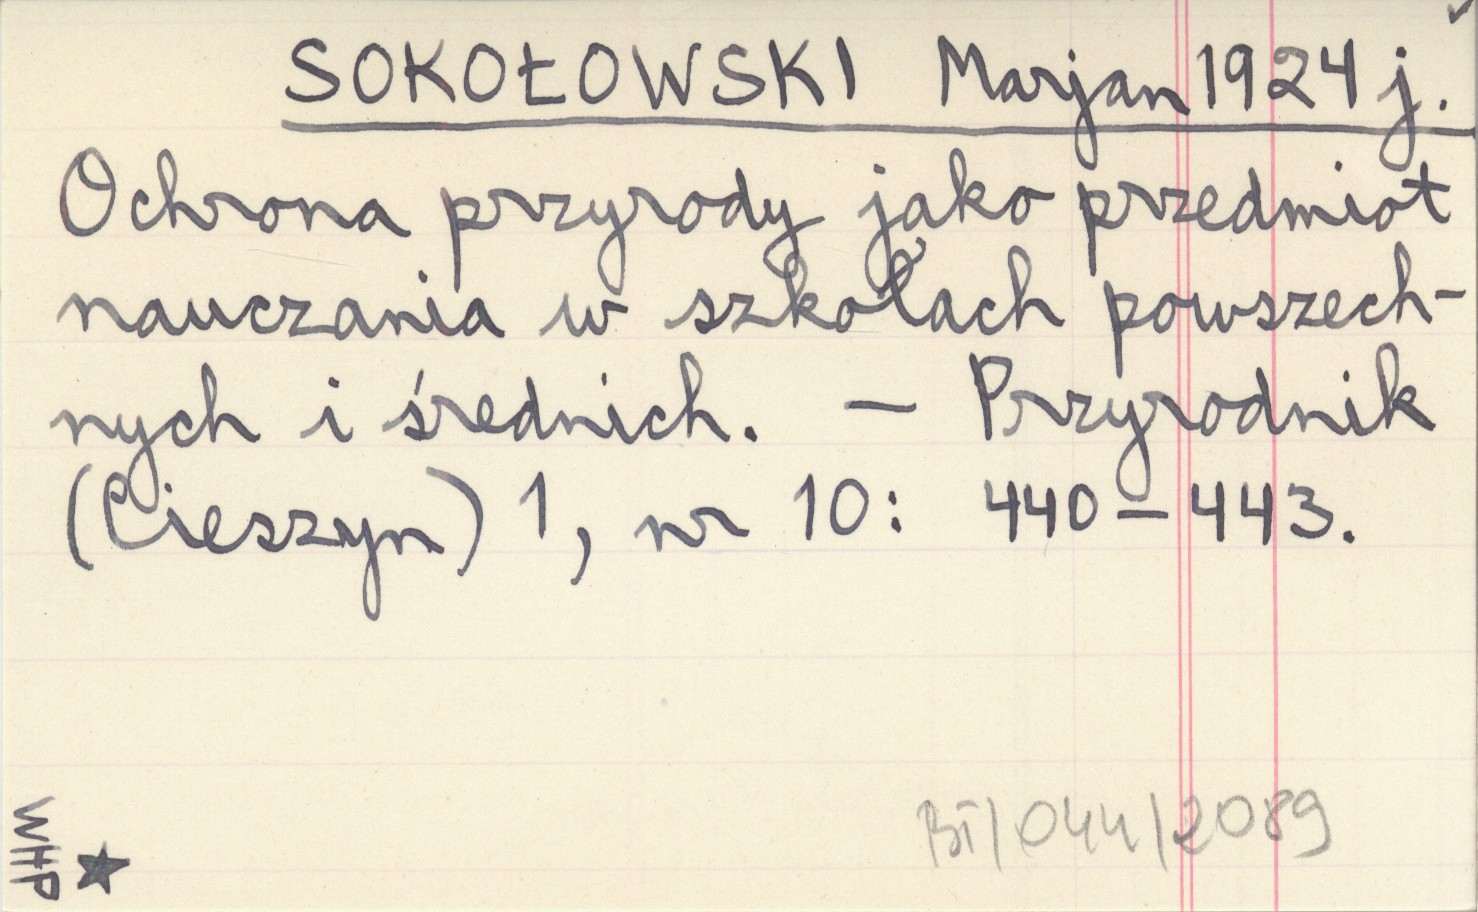 SOKOŁOWSKI Marjan 1924 j.
Ochrona przyrody jako przedmiot
nauczania w szkołach powszech-
nych i średnich. — Przyrodnik
(Cieszyn) 1, nr 10: 440-443.
BI/044/2089
WHP